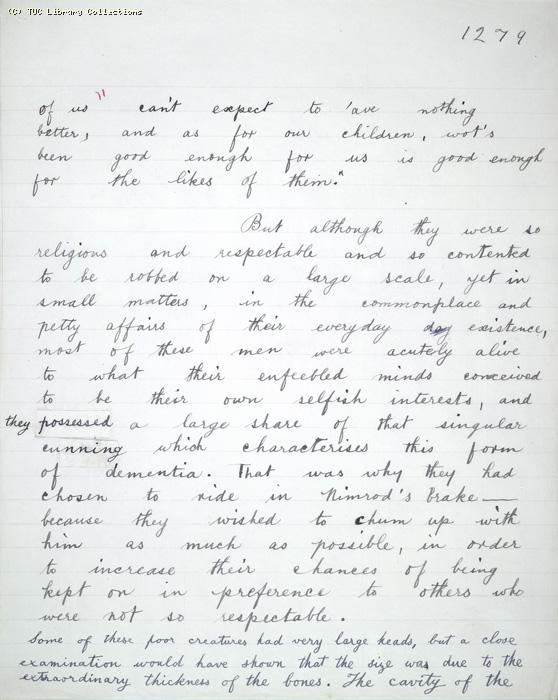 (C) TUC Library Collections
1279
of us" can't expect to 'ave nothing
better, and as for our children, wot's
been good enough for us is good enough
for the likes of them."
But although they were so
religious and respectable and so contented
to be robbed on a large scale, yet in
small matters, in the commonplace and
petty affairs of their everyday existence,
most of these men were acutely alive
to what their enfeebled minds conceived
to be their own selfish interests, and
they possessed a large share of that singular
cunning which characterises this form
of dementia. That was why they had
chosen to ride in Nimrod's Brake —
because they wished to chum up with
him as much as possible, in order
to increase their chances of being
kept on in preference to others who
were not so respectable.
Some of these poor creatures had very large heads, but a close
examination would have shown that the size was due to the
extraordinary thickness of the bones. The cavity of the